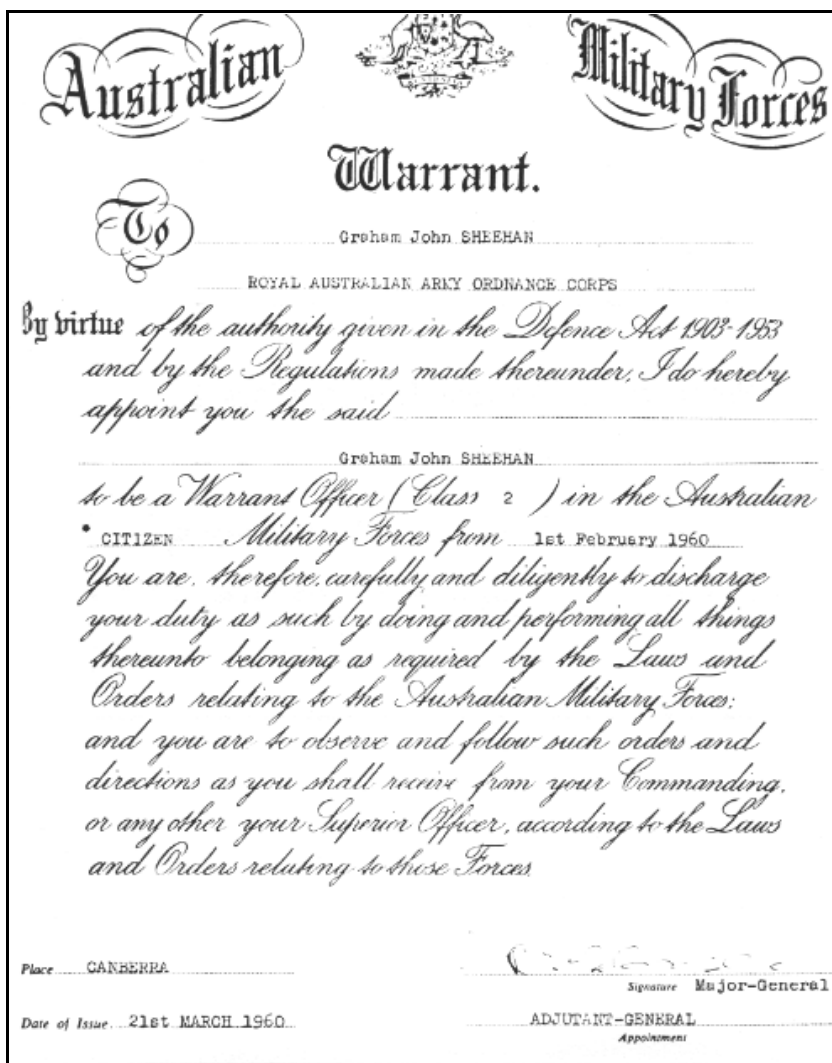 Australian Military Forces
Warrant.
To
Graham John SHEEHAN
ROYAL AUSTRALIAN ARMY ORDNANCE CORPS
By virtue of the authority given in the Defence Act 1903-1953
and by the Regulations made thereunder, I do hereby
appoint you the said
Graham John SHEEHAN
to be a Warrant Officer (Class 2 ) in the Australian
* CITIZEN Military Forces from 1st February 1960
You are, therefore, carefully and diligently to discharge
your duty as such by doing and performing all things
thereunto belonging as required by the Laws and
Orders relating to the Australian Military Forces;
and you are to observe and follow such orders and
directions as you shall receive from your Commanding,
or any other your Superior Officer, according to the Laws
and Orders relating to those Forces.
Place CANBERRA
Signature Major-General
Date of Issue 21st MARCH 1960
ADJUTANT-GENERAL
Appointment